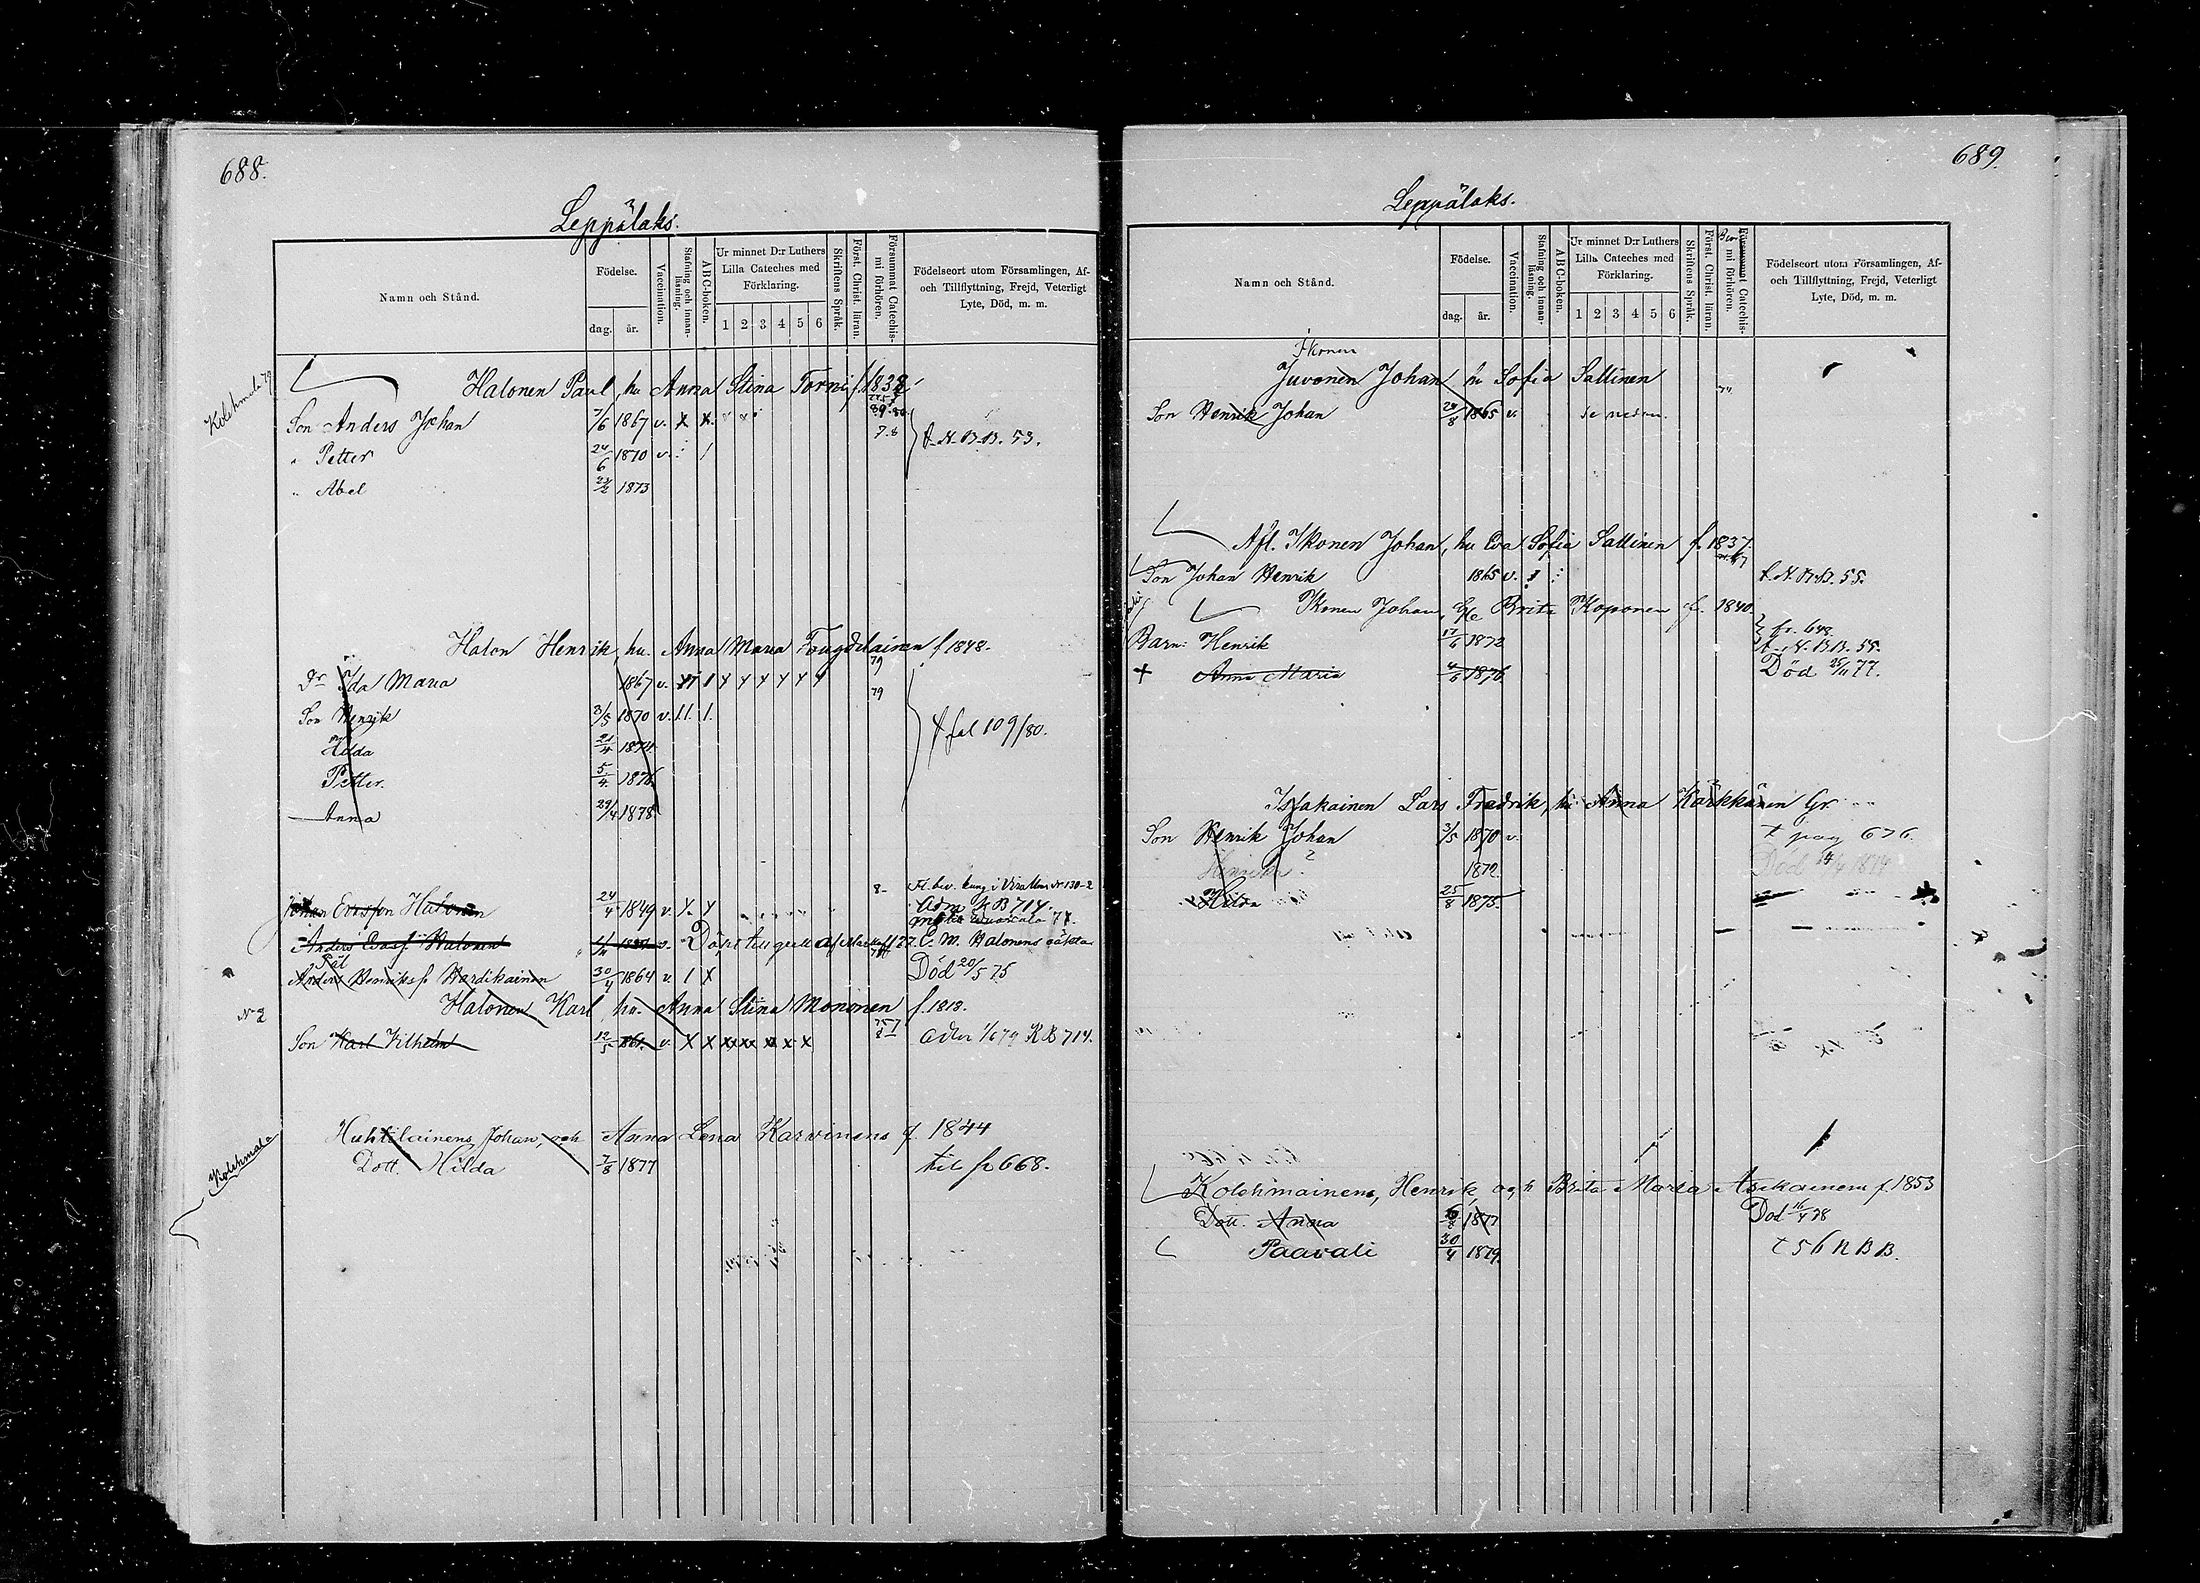 688.
Leppälaks.
Namn och Stånd.
Födelse.
dag. år.
Vaccination.
Stafning och innanläsning.
ABC-boken.
Ur minnet D:r Luthers Lilla Cateches med Förklaring.
1 2 3 4 5 6
Skriftens Språk.
Först. Christ. läran.
Försummat Catechismi förhören.
Födelseort utom Församlingen, Af- och Tillflyttning, Frejd, Veterligt Lyte, Död, m. m.
Kolehmala 79
Halonen Paul, hu Anna Stina Torni f. 1838
Son Anders Johan 7/6 1867 v. x x
" Petter 24/6 1870 v. t. N. B. B. 53.
" Abel 23/2 1873
Halon Henrik, hu. Anna Maria Fougdilainen f 1848.
Dr Ida Maria 1867 v. 79
Son Henrik 3/5 1870 v. 11 1. t fol 109/80.
Hilda 21/4 1874
Petter. 5/4 1876
Anna 29/4 1878
Johan Eversson Halonen 24/4 1849 v. x x
K B 714.
Anders Halonen
Död 20/5 75
Anders Henriks s Hardikainen 30/4 1864 v. 1 x
Halonen Karl hu. Anna Stina Mononen f. 1818.
Son Karl Vilhelm 12/5 1861. v. x x x x x x x x K B 714.
Kolehmala
Huhtilainens Johan, och Anna Lena Karvinens f. 1844
Dott. Hilda 7/8 1877 til p 668.
689.
Leppälaks.
Namn och Stånd.
Födelse.
dag. år.
Vaccination.
Stafning och innanläsning.
ABC-boken.
Ur minnet D:r Luthers Lilla Cateches med Förklaring.
1 2 3 4 5 6
Skriftens Språk.
Först. Christ. läran.
Försummat Catechismi förhören.
Födelseort utom Församlingen, Af- och Tillflyttning, Frejd, Veterligt Lyte, Död, m. m.
Ikonen
Juvonen Johan hu Sofia Sallinen
Son Henrik Johan 24/8 1865 v. se nedan.
Afl. Ikonen Johan, hu Eva Sofia Sallinen f. 1837.
Son Johan Henrik 1865 v. t. N. B. B. 55.
Ikonen Johan, Brita Koponen f. 1840.
fr. 648.
Barn: Henrik 17/6 1872 t. N. B. B. 55.
+ Anna Maria 4/6 1876 Död 25/11 77.
Issakainen Lars Fredrik, hu Anna Kärkkänen Gr.
Son Henrik Johan 3/5 1870 v. t pag 676.
1872. Död
Hilda 25/8 1875
Kolehmainens, Henrik, och Brita Maria Asikainens f. 1853
Dott. Anna 1877 Död 16/4 78
Paavali 30/4 1879. t 56 N B B.